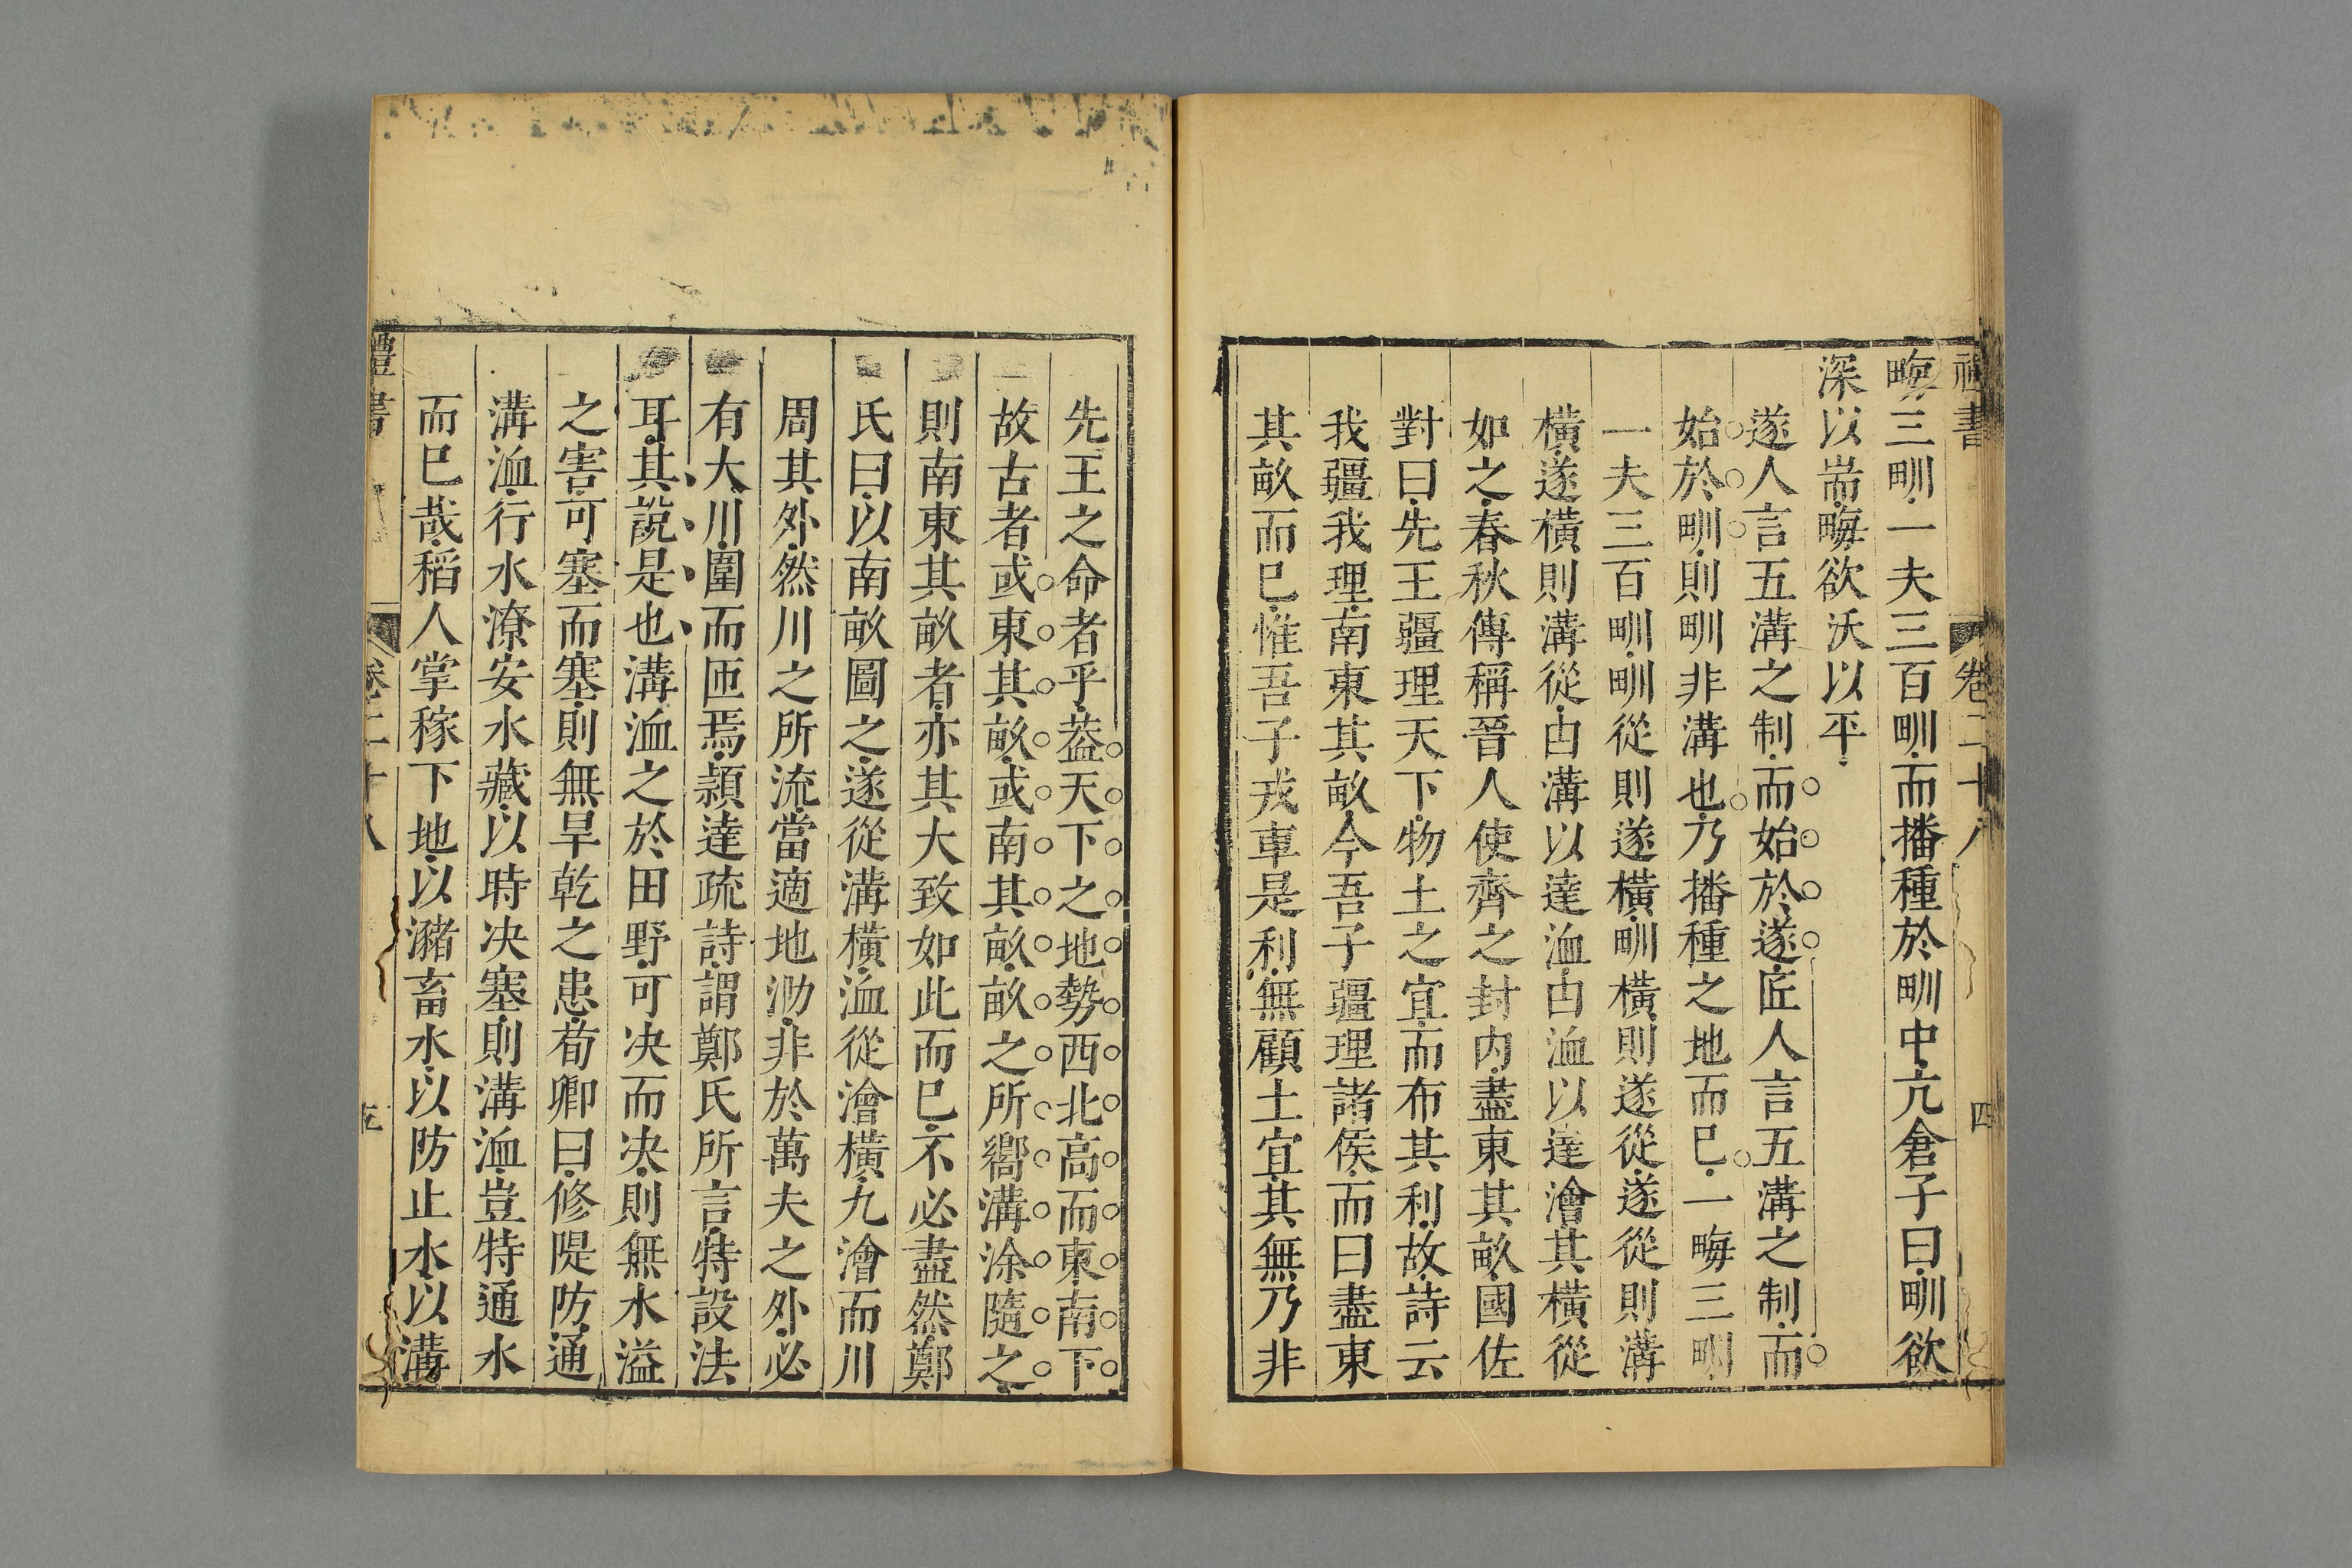 禮書 卷二十八 四
畮三甽一夫三百甽而播種於甽中亢倉子曰甽欲
深以耑畮欲沃以平
遂人言五溝之制而始於遂匠人言五溝之制而
始於甽則甽非溝也乃播種之地而巳一畮三甽
一夫三百甽甽從則遂橫甽橫則遂從遂從則溝
橫遂橫則溝從由溝以達洫由洫以達澮其橫從
如之春秋傳稱晉人使齊之封内盡東其畝國佐
對曰先王疆理天下物土之宜而布其利故詩云
我疆我理南東其畝今吾子疆理諸侯而曰盡東
其畝而巳惟吾子戎車是利無顧土宜其無乃非
先王之命者乎葢天下之地勢西北高而東南下
故古者或東其畝或南其畝畝之所嚮溝涂隨之
則南東其畝者亦其大致如此而巳不必盡然鄭
氏曰以南畝圖之遂從溝橫洫從澮橫九澮而川
周其外然川之所流當適地泐非於萬夫之外必
有大川圍而匝焉潁達疏詩謂鄭氏所言特設法
耳其説是也溝洫之於田野可决而决則無水溢
之害可塞而塞則無旱乾之患荀卿曰修隄防通
溝洫行水潦安水藏以時决塞則溝洫豈特通水
而巳哉稻人掌稼下地以瀦畜水以防止水以溝
禮書 卷二十八 五